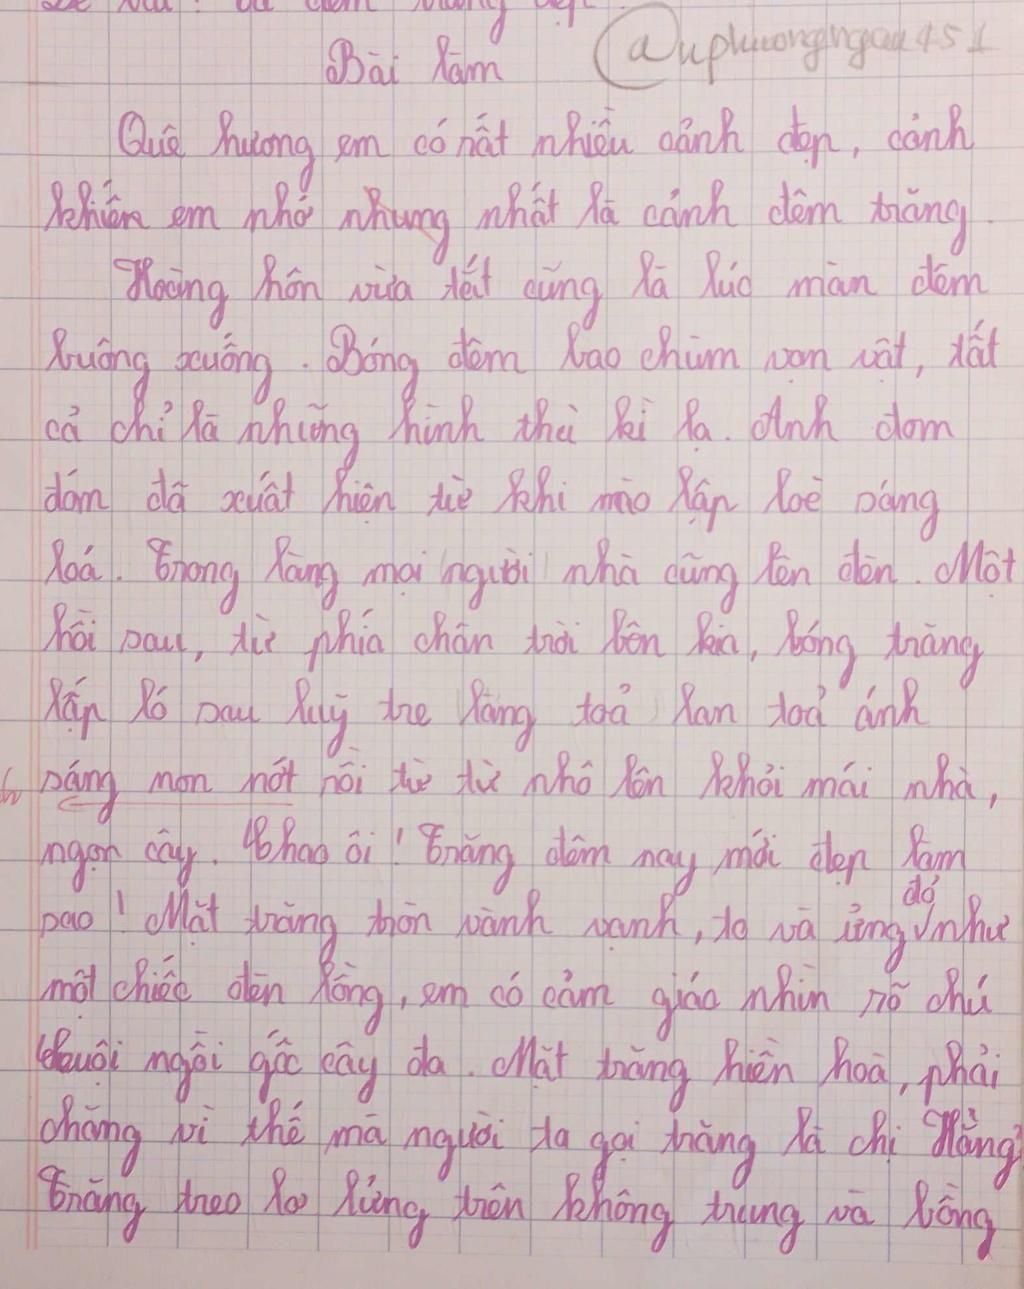 Đề bài: tả đêm trăng đẹp.
Bài làm @uphuongngoa451
Quê hương em có rất nhiều cảnh đẹp, cảnh
khiến em nhớ nhung nhất là cảnh đêm trăng.
Hoàng hôn vừa tắt cũng là lúc màn đêm
buông xuống. Bóng đêm bao chùm vạn vật, tất
cả chỉ là những hình thù kì lạ. Anh đom
đóm đã xuất hiện từ khi nào lập loè sáng
loá. Trong làng mọi người nhà cũng lên đèn. Một
hồi sau, từ phía chân trời bên kia, bóng trăng
lấp ló sau luỹ tre làng toả lan toả ánh
sáng mơn mớt rồi từ từ nhô lên khỏi mái nhà,
ngọn cây. Chao ôi! Trăng đêm nay mới đẹp làm
sao! Mặt trăng tròn vành vạnh, to và ửng đỏ như
một chiếc đèn lồng, em có cảm giác nhìn rõ chú
Cuội ngồi gốc cây đa. Mặt trăng hiền hoà, phải
chăng vì thế mà người ta gọi trăng là chị Hằng
Trăng treo lơ lửng trên không trung và bồng